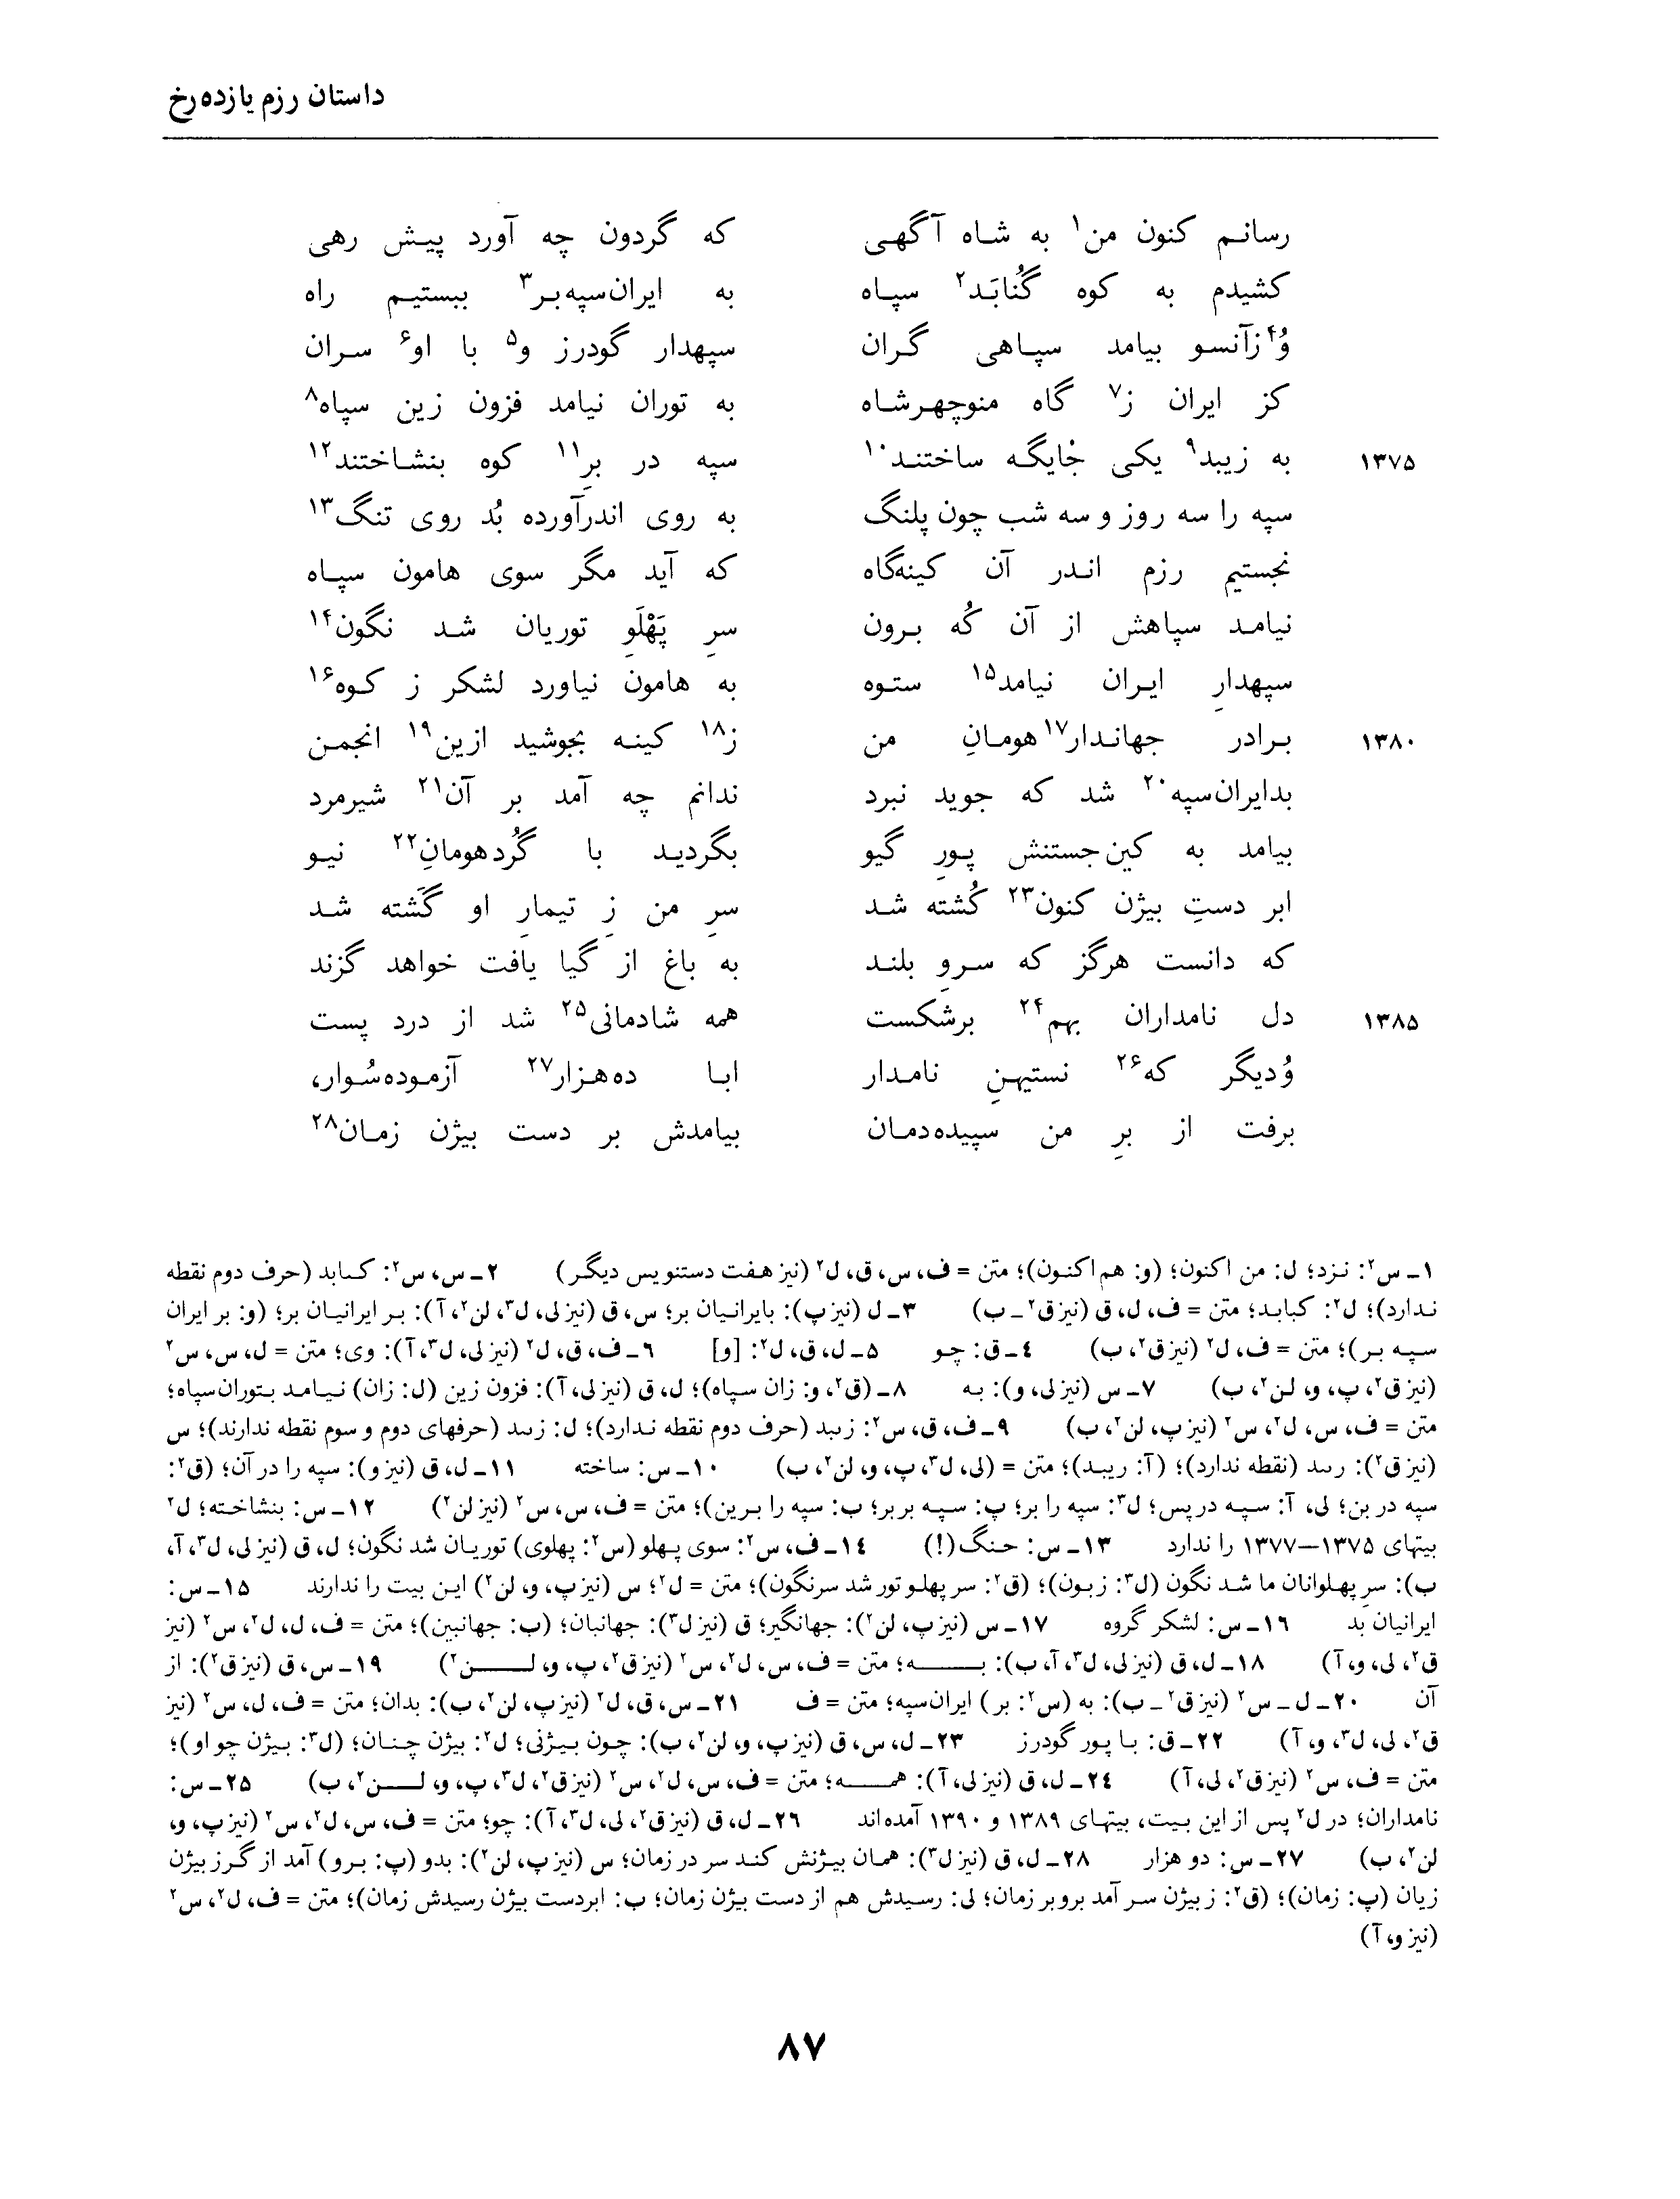 داستان رزم یازده رخ
رسانم کنون من۱ به شاه آگهی که گردون چه آورد پیش رهی
کشیدم به کوه گُنابَد۲ سپاه به ایران‌سپه‌بر۳ ببستیم راه
وُ۴زآنسو بیامد سپاهی گران سپهدار گودرز و۵ با او۶ سران
کز ایران ز۷ گاه منوچهرشاه به توران نیامد فزون زین سپاه۸
۱۳۷۵ به زیبد۹ یکی جْایگه ساختند۱۰ سپه در برِ۱۱ کوه بنشاختند۱۲
سپه را سه روز و سه شب چون پلنگ به روی اندرآورده بُد روی تنگ۱۳
نجستیم رزم اندر آن کینه‌گاه که آید مگر سوی هامون سپاه
نیامد سپاهش از آن کُه برون سرِ پَهْلَوِ توریان شد نگون۱۴
سپهدارِ ایران نیامد۱۵ ستوه به هامون نیاورد لشکر ز کوه۱۶
۱۳۸۰ برادر جهاندار۱۷ هومانِ من ز۱۸ کینه بجوشید ازین۱۹ انجمن
بدایران‌سپه۲۰ شد که جوید نبرد ندانم چه آمد بر آن۲۱ شیرمرد
بیامد به کین‌جستنش پورِ گیو بگردید با گُردهومانِ۲۲ نیو
ابر دستِ بیژن کنون۲۳ کُشته شد سرِ من زِ تیمارِ او گَشته شد
که دانست هرگز که سروِ بلند به باغ از گیا یافت خواهد گزند
۱۳۸۵ دل نامداران بهم۲۴ برشکست همه شادمانی۲۵ شد از درد پست
وُدیگر که۲۶ نستیهنِ نامدار ابا ده‌هزار۲۷ آزموده‌سُوار،
برفت از برِ من سپیده‌دمان بیامدش بر دست بیژن زمان۲۸
۱ــ س۲: نزد؛ ل: من اکنون؛ (و: هم اکنون)؛ متن = ف، س، ق، ل۲ (نیز هفت دستنویس دیگر) ۲ــ س، س۲: کٮابد (حرف دوم نقطه
ندارد)؛ ل۲: کباید؛ متن = ف، ل، ق (نیز ق۲ــ ب) ۳ــ ل (نیز پ): بایرانیان بر؛ س، ق (نیز لی، ل۳، لن۲، آ): بر ایرانیان بر؛ (و: بر ایران
سپه بر)؛ متن = ف، ل۲ (نیز ق۲، ب) ٤ــ ق: چو ۵ــ ل، ق، ل۲: [و] ٦ــ ف، ق، ل۲ (نیز لی، ل۳، آ): وی؛ متن = ل، س، س۲
(نیز ق۲، پ، و، لن۲، ب) ۷ــ س (نیز لی، و): به ۸ــ (ق۲، و: زان سپاه)؛ ل، ق (نیز لی، آ): فزون زین (ل: زان) نیامد بتوران‌سپاه؛
متن = ف، س، ل۲، س۲ (نیز پ، لن۲، ب) ۹ــ ف، ق، س۲: زٮبد (حرف دوم نقطه ندارد)؛ ل: زٮٮد (حرفهای دوم و سوم نقطه ندارند)؛ س
(نیز ق۲): رٮٮد (نقطه ندارد)؛ (آ: ریبد)؛ متن = (لی، ل۳، پ، و، لن۲، ب) ۱۰ــ س: ساخته ۱۱ــ ل، ق (نیز و): سپه را در آن؛ (ق۲:
سپه در بن؛ لی، آ: سپه در پس؛ ل۳: سپه را بر؛ پ: سپه بر بر؛ ب: سپه را برین)؛ متن = ف، س، س۲ (نیز لن۲) ۱۲ــ س: بنشاخته؛ ل۲
بیتهای ۱۳۷۵ــ۱۳۷۷ را ندارد ۱۳ــ س: حنگ(!) ١٤ــ ف، س۲: سوی پهلو (س۲: پهلوی) توریان شد نگون؛ ل، ق (نیز لی، ل۳، آ،
ب): سر پهلوانان ما شد نگون (ل۳: زبون)؛ (ق۲: سر پهلو تور شد سرنگون)؛ متن = ل۲؛ س (نیز پ، و، لن۲) این بیت را ندارند ۱۵ــ س:
ایرانیان بد ۱٦ــ س: لشکر گروه ۱۷ــ س (نیز پ، لن۲): جهانگیر؛ ق (نیز ل۳): جهانبان؛ (ب: جهانبین)؛ متن = ف، ل، ل۲، س۲ (نیز
ق۲، لی، و، آ) ۱۸ــ ل، ق (نیز لی، ل۳، آ، ب): به؛ متن = ف، س، ل۲، س۲ (نیز ق۲، پ، و، لن۲) ۱۹ــ س، ق (نیز ق۲): از
آن ۲۰ــ ل ــ س۲ (نیز ق۲ــ ب): به (س۲: بر) ایران‌سپه؛ متن = ف ۲۱ــ س، ق، ل۲ (نیز پ، لن۲، ب): بدان؛ متن = ف، ل، س۲ (نیز
ق۲، لی، ل۳، و، آ) ۲۲ــ ق: با پور گودرز ۲۳ــ ل، س، ق (نیز پ، و، لن۲، ب): چون بیژنی؛ ل۲: بیژن چنان؛ (ل۳: بیژن چو او)؛
متن = ف، س۲ (نیز ق۲، لی، آ) ٢٤ــ ل، ق (نیز لی، آ): همه؛ متن = ف، س، ل۲، س۲ (نیز ق۲، ل۳، پ، و، لن۲، ب) ۲۵ــ س:
نامداران؛ در ل۲ پس از این بیت، بیتهای ۱۳۸۹ و ۱۳۹۰ آمده‌اند ۲٦ــ ل، ق (نیز ق۲، لی، ل۳، آ): چو؛ متن = ف، س، ل۲، س۲ (نیز پ، و،
لن۲، ب) ۲۷ــ س: دو هزار ۲۸ــ ل، ق (نیز ل۳): همان بیژنش کند سر در زمان؛ س (نیز پ، لن۲): بدو (پ: برو) آمد از گرز بیژن
زیان (پ: زمان)؛ (ق۲: ز بیژن سر آمد برو بر زمان؛ لی: رسیدش هم از دست بیژن زمان؛ ب: ابردست بیژن رسیدش زمان)؛ متن = ف، ل۲، س۲
(نیز و، آ)
۸۷